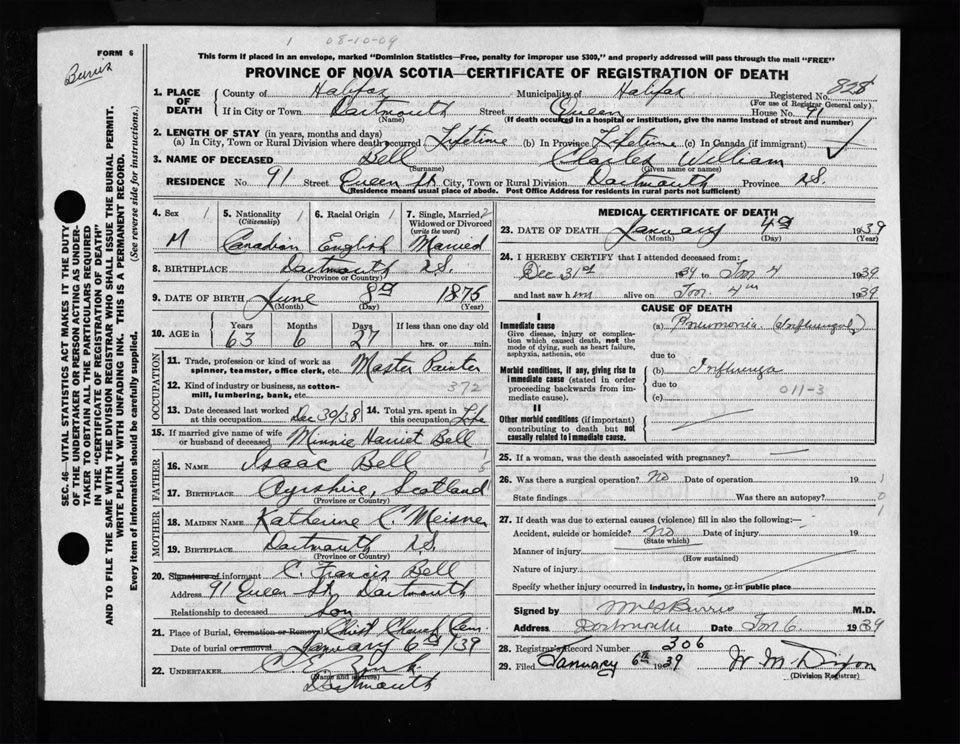 1 08-10-09
FORM 6
Burris
This form if placed in an envelope, marked "Dominion Statistics—Free, penalty for improper use $300," and properly addressed will pass through the mail "FREE"
PROVINCE OF NOVA SCOTIA—CERTIFICATE OF REGISTRATION OF DEATH
SEC. 46—VITAL STATISTICS ACT MAKES IT THE DUTY OF THE UNDERTAKER OR PERSON ACTING AS UNDERTAKER TO OBTAIN ALL THE PARTICULARS REQUIRED IN THE "CERTIFICATE OF REGISTRATION OF DEATH" AND TO FILE THE SAME WITH THE DIVISION REGISTRAR WHO SHALL ISSUE THE BURIAL PERMIT.
WRITE PLAINLY WITH UNFADING INK. THIS IS A PERMANENT RECORD.
Every item of information should be carefully supplied. (See reverse side for instructions.)
1. PLACE OF DEATH County of Halifax Municipality of Halifax Registered No. 828
(For use of Registrar General only)
If in City or Town Dartmouth Street Queen House No. 91
(Name) (If death occurred in a hospital or institution, give the name instead of street and number)
2. LENGTH OF STAY (in years, months and days)
(a) In City, Town or Rural Division where death occurred Lifetime (b) In Province Lifetime (c) In Canada (if immigrant)
3. NAME OF DECEASED Bell Charles William
(Surname) (Given name or names)
RESIDENCE No. 91 Street Queen St. City, Town or Rural Division Dartmouth Province N.S.
(Residence means usual place of abode. Post Office Address for residents in rural parts not sufficient)
4. Sex 1 5. Nationality 1 (Citizenship) 6. Racial Origin 1 7. Single, Married, 2 Widowed or Divorced (write the word)
M Canadian English Married
8. BIRTHPLACE Dartmouth N.S.
(Province or Country)
9. DATE OF BIRTH June 8th 1875
(Month) (Day) (Year)
10. AGE in Years Months Days If less than one day old
63 6 27 hrs. or min.
OCCUPATION
11. Trade, profession or kind of work as spinner, teamster, office clerk, etc. Master Painter
12. Kind of industry or business, as cotton-mill, lumbering, bank, etc. 372
13. Date deceased last worked at this occupation Dec 30/38 14. Total yrs. spent in this occupation Life
15. If married give name of wife or husband of deceased Minnie Harriet Bell
FATHER
16. NAME Isaac Bell
17. BIRTHPLACE Ayrshire, Scotland
(Province or Country)
MOTHER
18. MAIDEN NAME Katherine C. Meisner
19. BIRTHPLACE Dartmouth N.S.
(Province or Country)
20. Signature of informant C. Francis Bell
Address 91 Queen St. Dartmouth
Relationship to deceased Son
21. Place of Burial, Cremation or Removal Christ Church Cem.
Date of burial or removal January 6th /39
22. UNDERTAKER
(Name and address)
Dartmouth
MEDICAL CERTIFICATE OF DEATH
23. DATE OF DEATH January 4th 1939
(Month) (Day) (Year)
24. I HEREBY CERTIFY that I attended deceased from:
Dec 31st to Jan 4 1939
and last saw him alive on Jan 4th 1939
CAUSE OF DEATH
I
Immediate cause
Give disease, injury or complication which caused death, not the mode of dying, such as heart failure, asphyxia, asthenia, etc
(a) Pneumonia (Influenzal)
due to
Morbid conditions, if any, giving rise to immediate cause (stated in order proceeding backwards from immediate cause).
(b) Influenza
due to
(c) 011-3
II
Other morbid conditions (if important) contributing to death but not causally related to immediate cause.
25. If a woman, was the death associated with pregnancy?
26. Was there a surgical operation? No Date of operation 19 1
State findings Was there an autopsy? 0
27. If death due to external causes (violence) fill in also the following:—
Accident, suicide or homicide? No Date of injury 19
(State which)
Manner of injury
(How sustained)
Nature of injury
Specify whether injury occurred in industry, in home, or in public place
Signed by Burris M.D.
Address Dartmouth Date Jan 6. 1939
28. Registrar's Record Number 306
29. Filed January 6th 1939 W. M. Dixon
(Division Registrar)